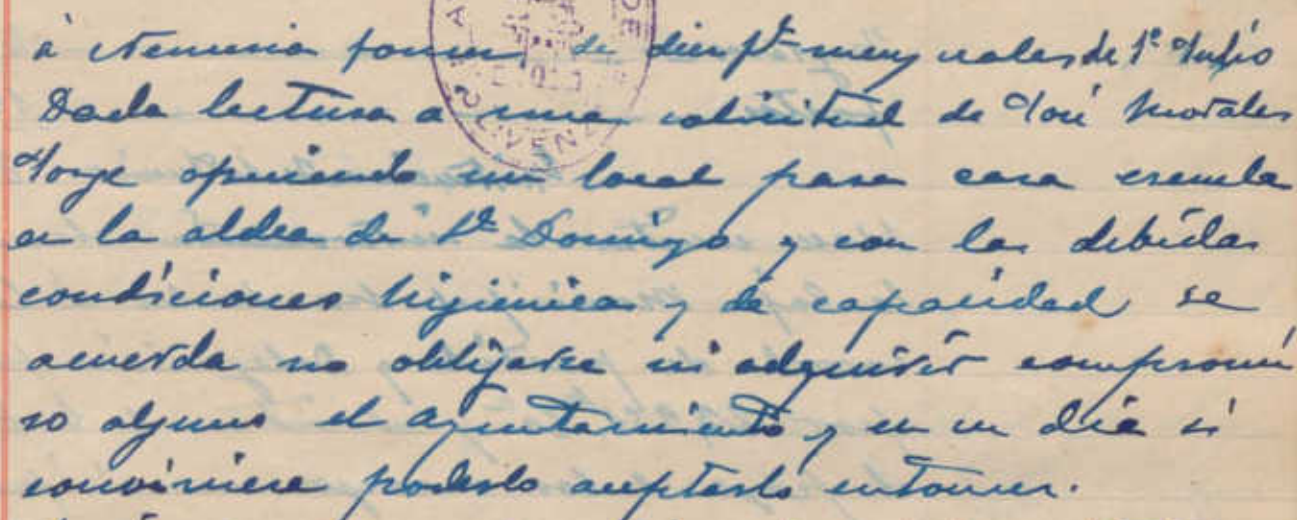 á Nemesia de diez pts mensuales de 1º Julio
Dada lectura a una solicitud de José Morales
Jorge opreciendo un local para casa escuela
en la aldea de Sto Domingo y con las debidas
condiciones higienicas y de capacidad se
acuerda no obligarse ni adquirir compromi
so alguno el ayuntamiento y en un dia si
conviniere poderlo aceptarlo entonces.